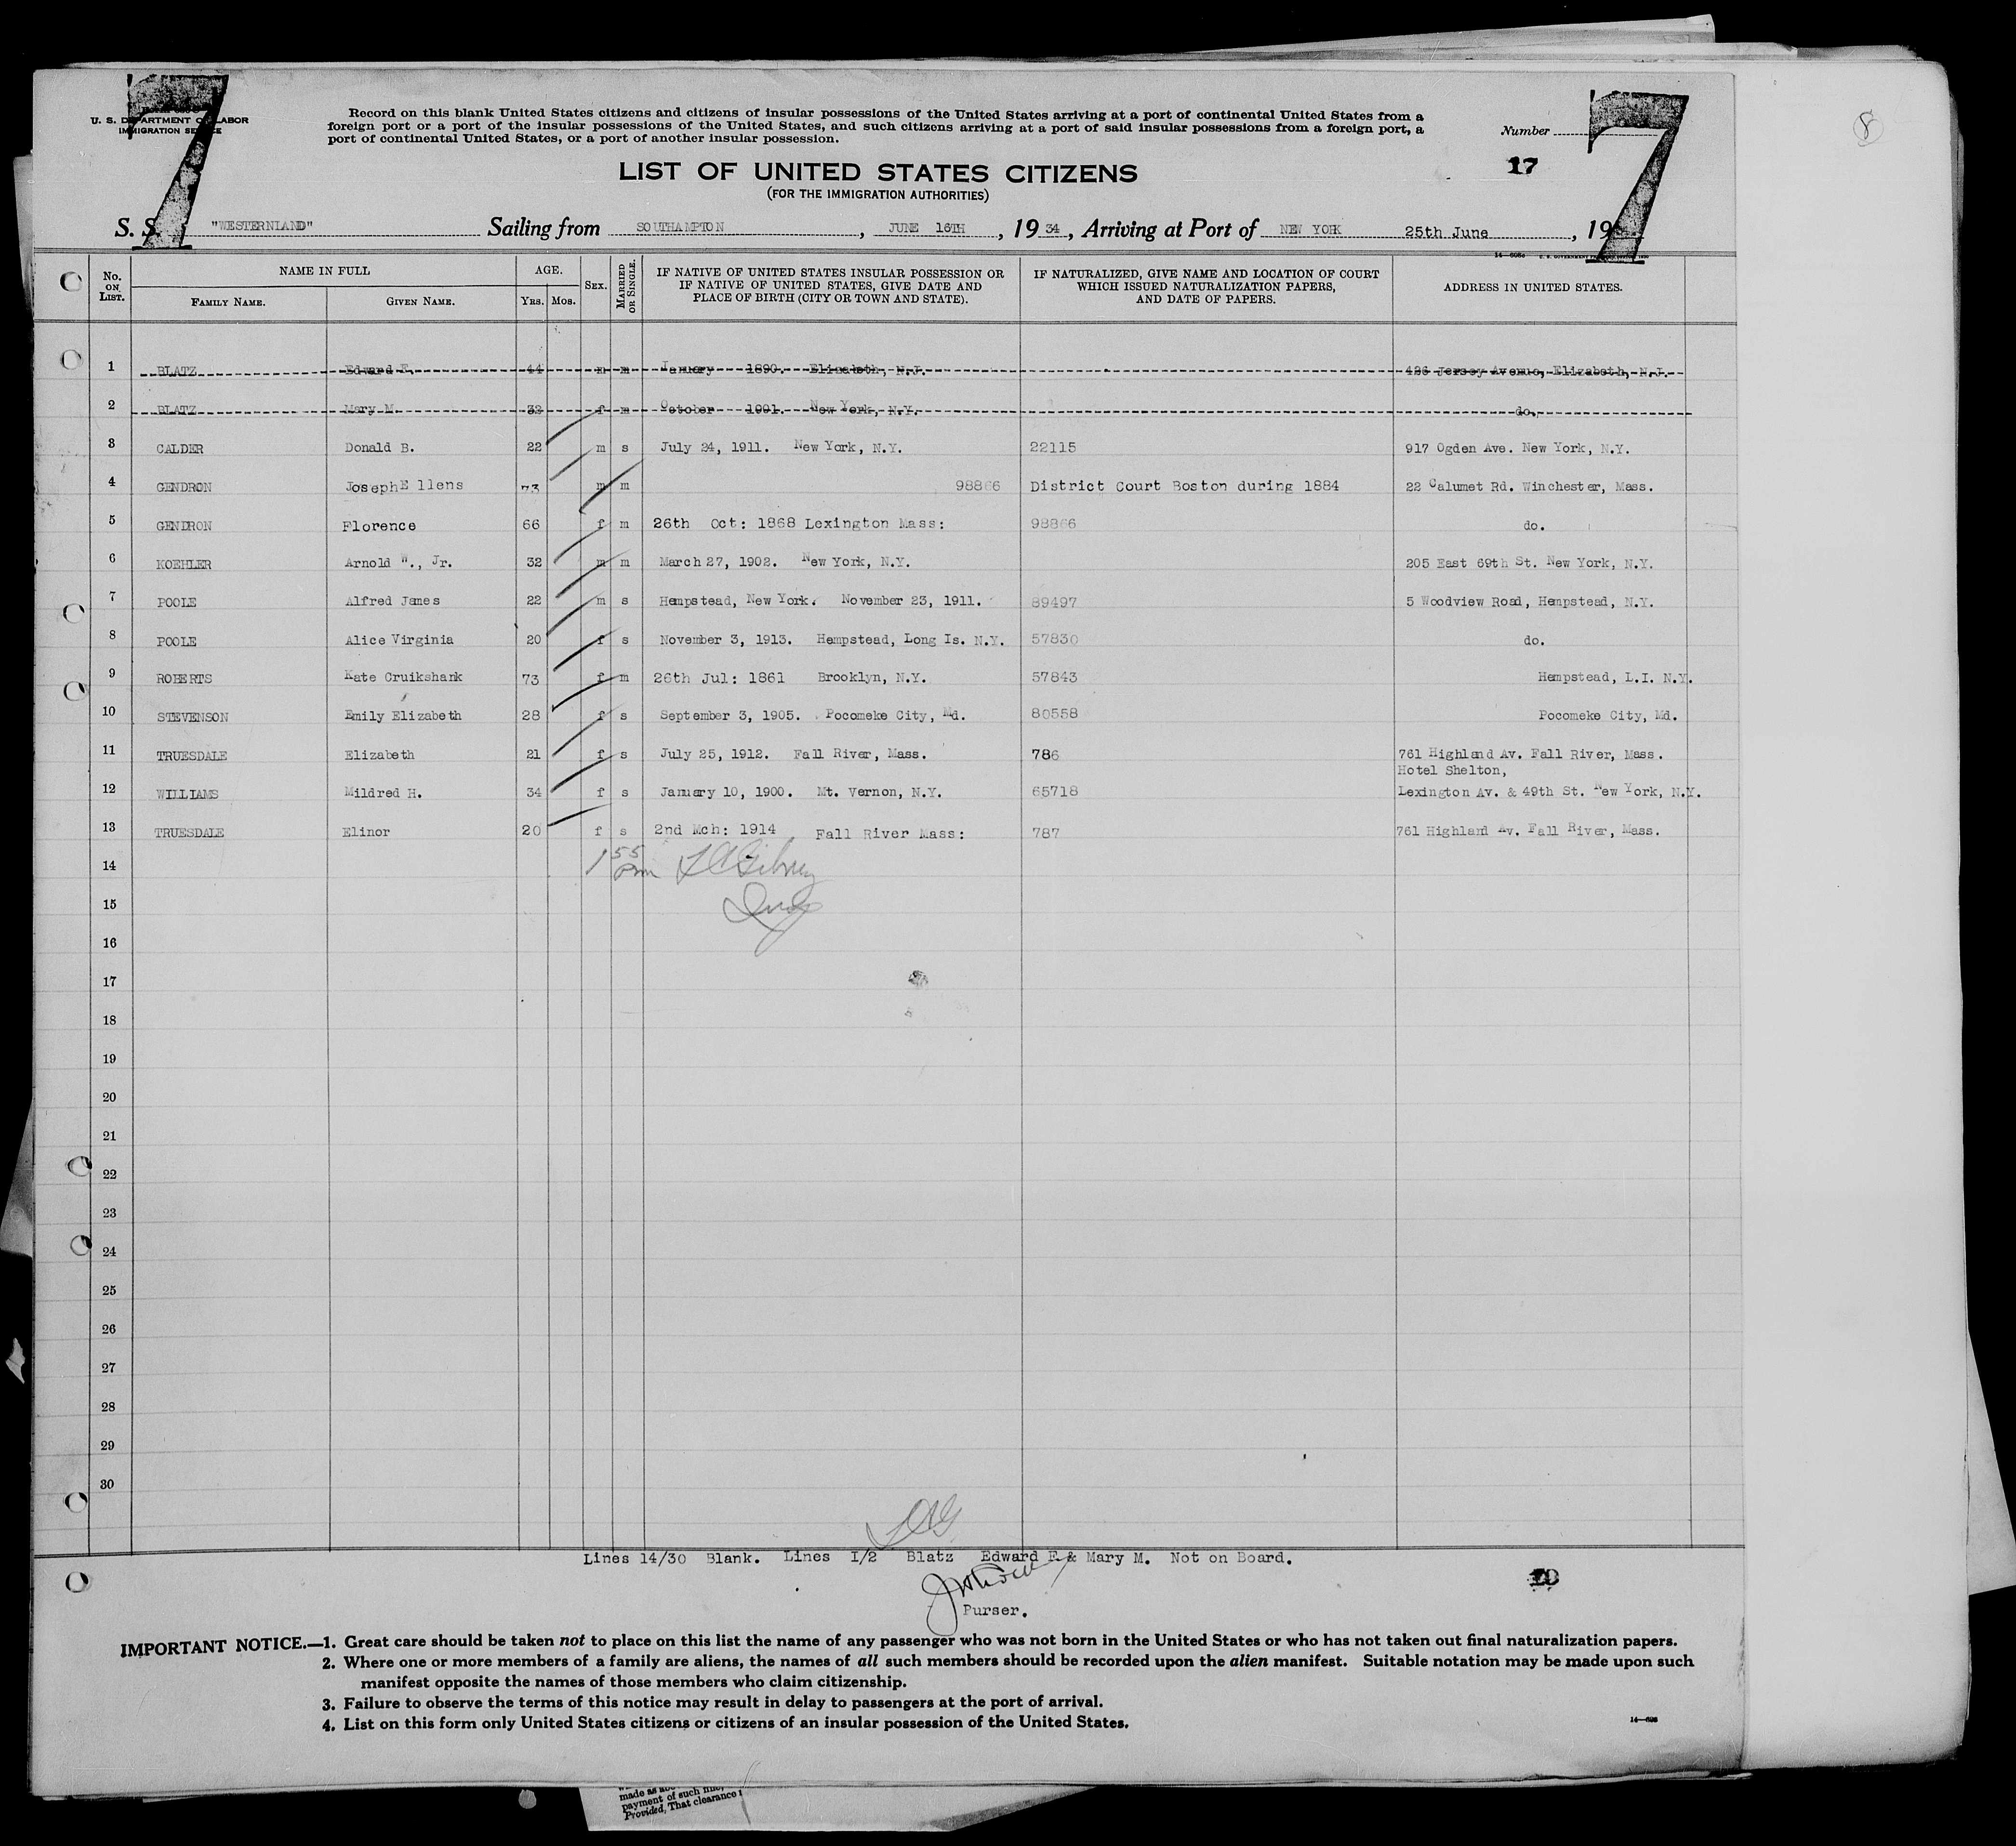 7 7
8
U. S. DEPARTMENT OF LABOR
IMMIGRATION SERVICE
Record on this blank United States citizens and citizens of insular possessions of the United States arriving at a port of continental United States from a
foreign port or a port of the insular possessions of the United States, and such citizens arriving at a port of said insular possessions from a foreign port, a
port of continental United States, or a port of another insular possession.
Number
17
LIST OF UNITED STATES CITIZENS
(FOR THE IMMIGRATION AUTHORITIES)
S. S. "WESTERNLAND" Sailing from SOUTHAMPTON, JUNE 16TH, 1934, Arriving at Port of NEW YORK 25th June, 19
No. ON LIST. NAME IN FULL AGE. SEX. MARRIED OR SINGLE. IF NATIVE OF UNITED STATES INSULAR POSSESSION OR IF NATIVE OF UNITED STATES, GIVE DATE AND PLACE OF BIRTH (CITY OR TOWN AND STATE). IF NATURALIZED, GIVE NAME AND LOCATION OF COURT WHICH ISSUED NATURALIZATION PAPERS, AND DATE OF PAPERS. ADDRESS IN UNITED STATES.
FAMILY NAME. GIVEN NAME. YRS. MOS.
1 BLATZ Edward F. 44 m m January 1890. Elizabeth, N.J. 426 Jersey Avenue, Elizabeth, N.J.
2 BLATZ Mary M. 32 f m October 1901. New York, N.Y. do.
3 CALDER Donald B. 22 m s July 24, 1911. New York, N.Y. 22115 917 Ogden Ave. New York, N.Y.
4 GENDRON JosephE llens 73 m m 98866 District Court Boston during 1884 22 Calumet Rd. Winchester, Mass.
5 GENDRON Florence 66 f m 26th Oct: 1868 Lexington Mass: 98866 do.
6 KOEHLER Arnold W., Jr. 32 m m March 27, 1902. New York, N.Y. 205 East 69th St. New York, N.Y.
7 POOLE Alfred James 22 m s Hempstead, New York. November 23, 1911. 89497 5 Woodview Road, Hempstead, N.Y.
8 POOLE Alice Virginia 20 f s November 3, 1913. Hempstead, Long Is. N.Y. 57830 do.
9 ROBERTS Kate Cruikshank 73 f m 26th Jul: 1861 Brooklyn, N.Y. 57843 Hempstead, L.I. N.Y.
10 STEVENSON Emily Elizabeth 28 f s September 3, 1905. Pocomeke City, Md. 80558 Pocomeke City, Md.
11 TRUESDALE Elizabeth 21 f s July 25, 1912. Fall River, Mass. 786 761 Highland Av. Fall River, Mass.
Hotel Shelton,
12 WILLIAMS Mildred H. 34 f s January 10, 1900. Mt. Vernon, N.Y. 65718 Lexington Av. & 49th St. New York, N.Y.
13 TRUESDALE Elinor 20 f s 2nd Mch: 1914 Fall River Mass: 787 761 Highland Av. Fall River, Mass.
14 1 55 pm
15
16
17
18
19
20
21
22
23
24
25
26
27
28
29
30
Lines 14/30 Blank. Lines I/2 Blatz Edward F. & Mary M. Not on Board.
Purser.
10
IMPORTANT NOTICE.—1. Great care should be taken not to place on this list the name of any passenger who was not born in the United States or who has not taken out final naturalization papers.
2. Where one or more members of a family are aliens, the names of all such members should be recorded upon the alien manifest. Suitable notation may be made upon such
manifest opposite the names of those members who claim citizenship.
3. Failure to observe the terms of this notice may result in delay to passengers at the port of arrival.
4. List on this form only United States citizens or citizens of an insular possession of the United States.
payment of such
Provided, That clearance